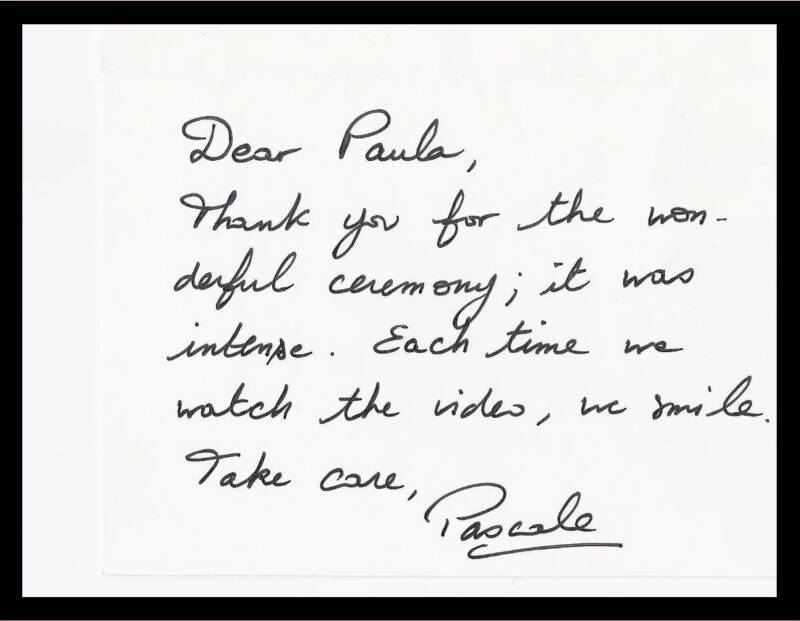 Dear Paula,
Thank you for the won-
derful ceremony; it was
intense. Each time we
watch the video, we smile.
Take care,
Pascale